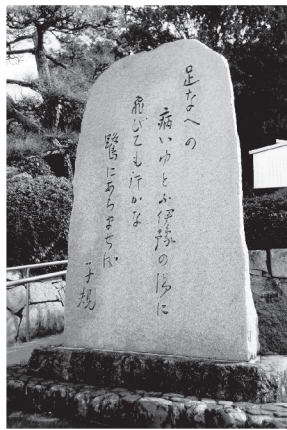 足なへの
病いゆとふ伊豫の湯に
飛びても行かな
鷺にあらませば
子規